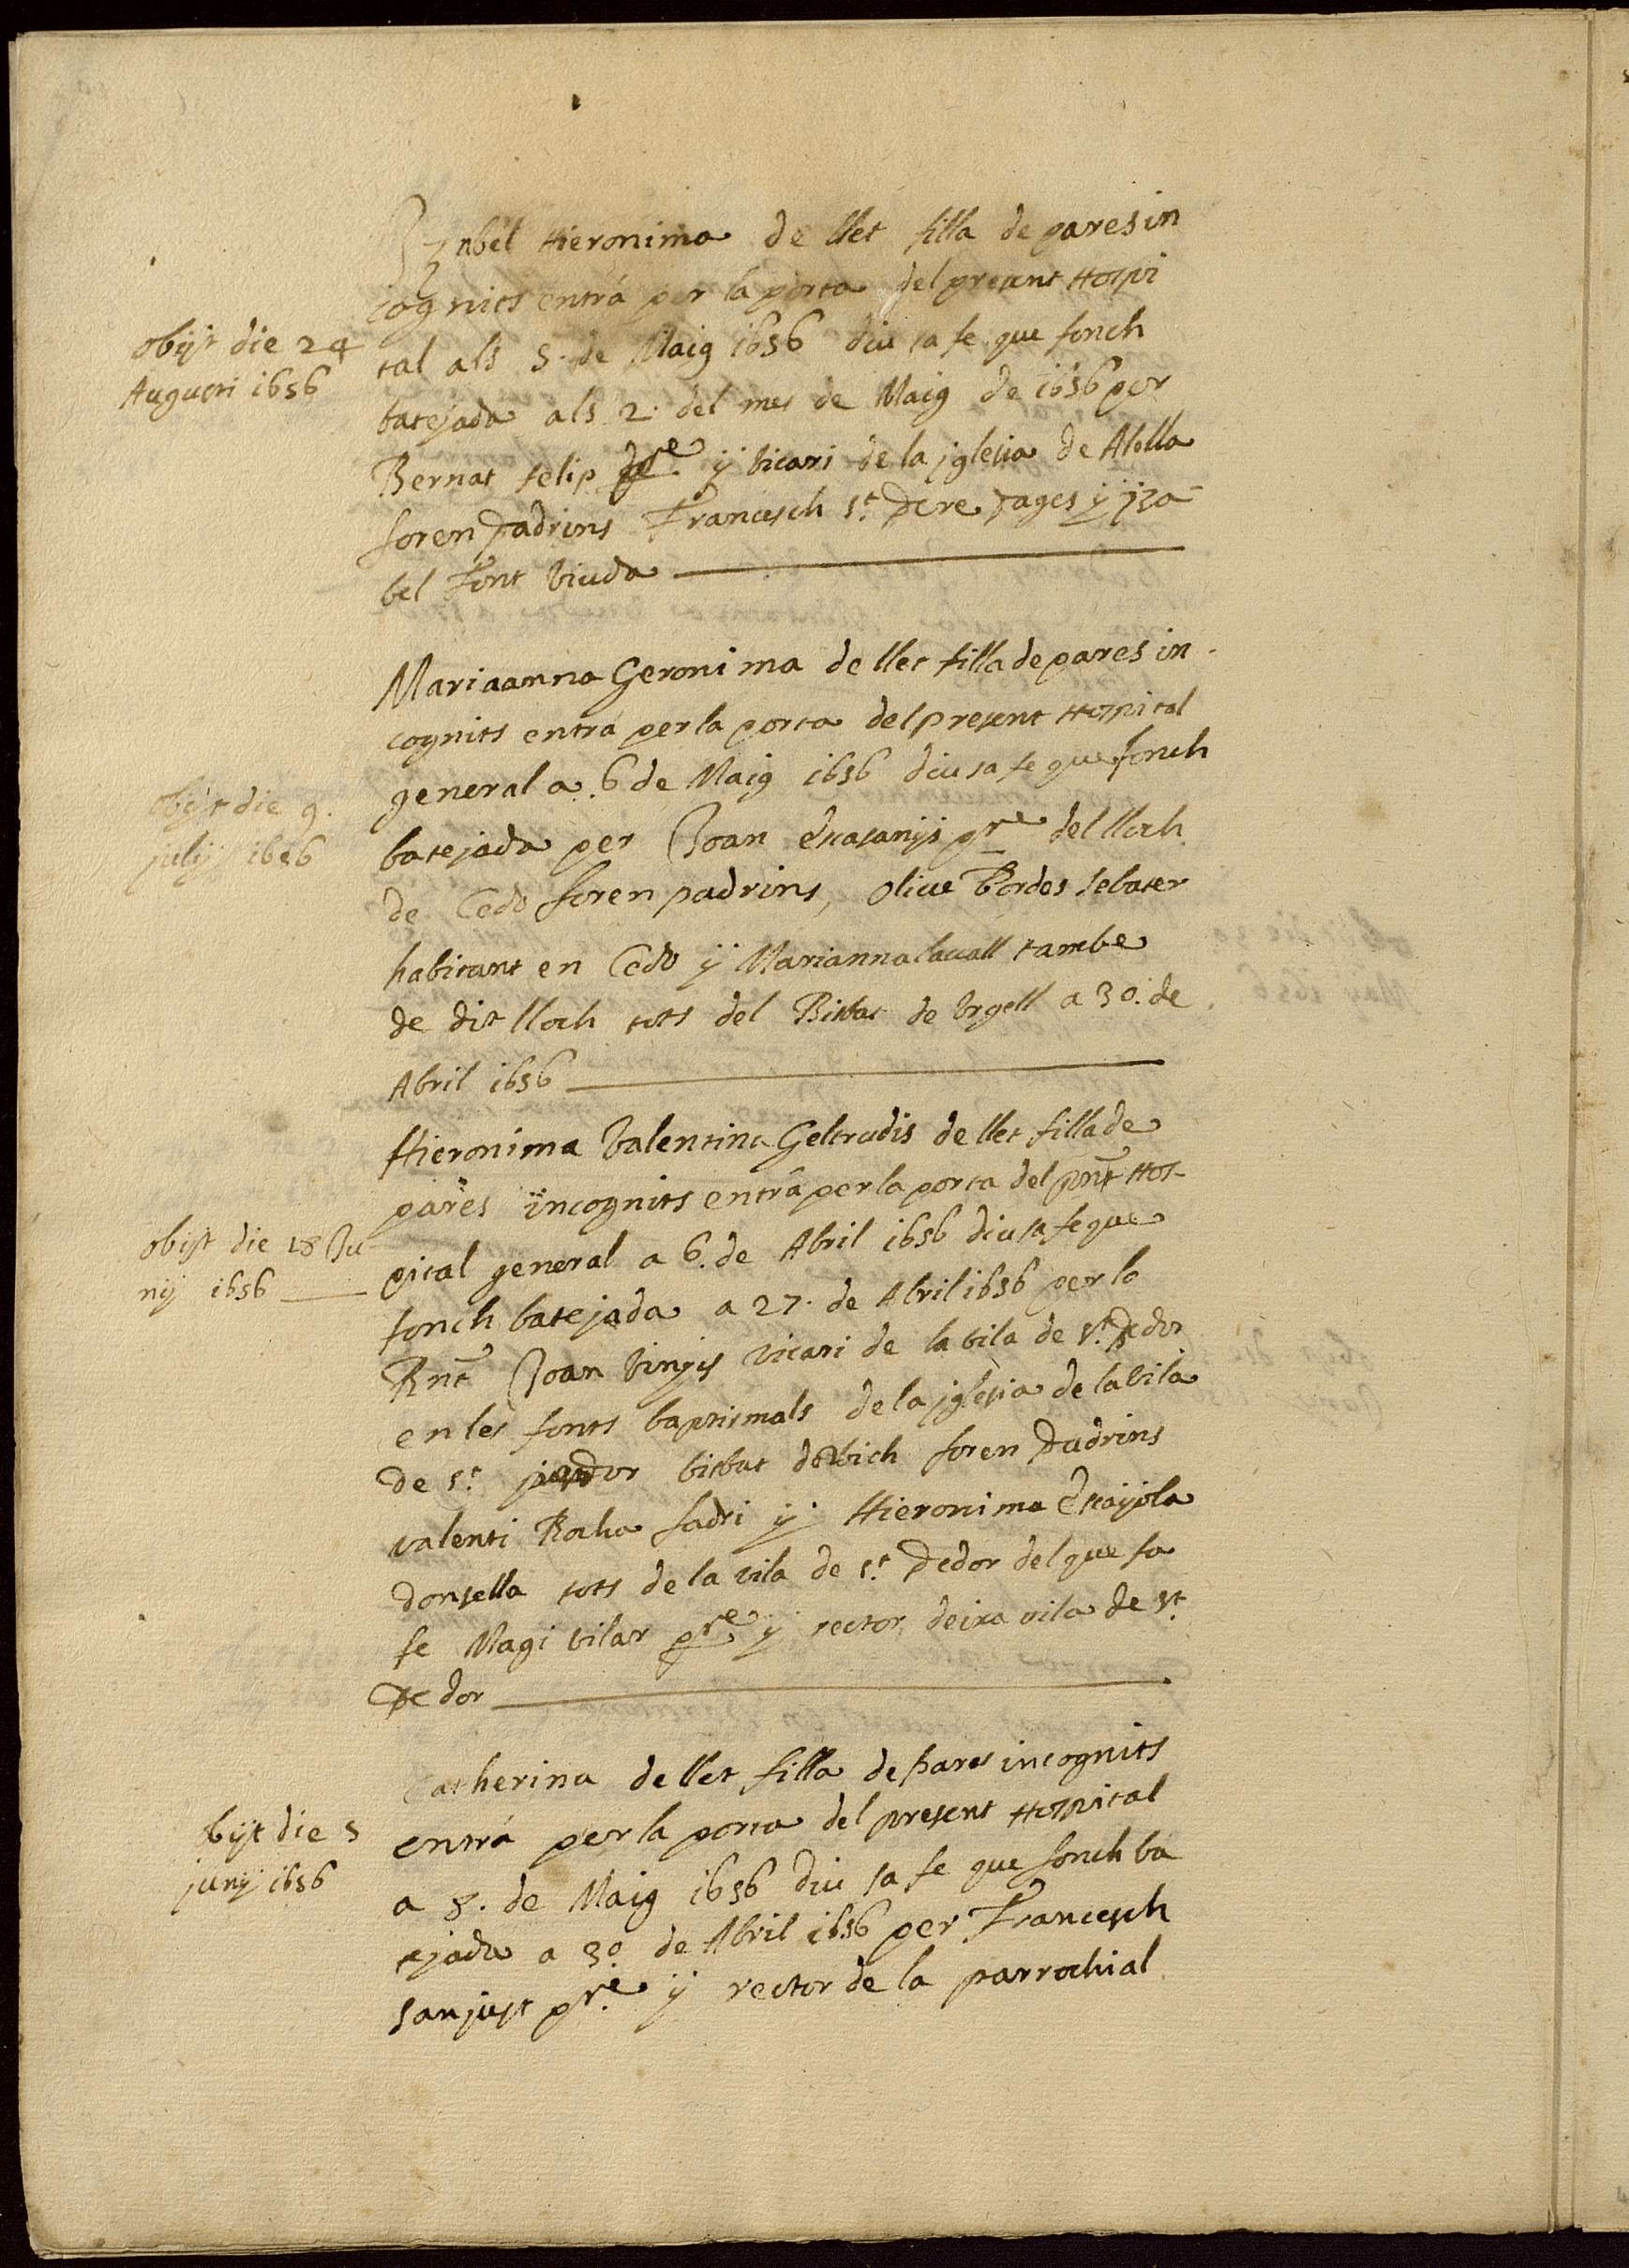 Izabel Hieronima de llet filla de pares in
cognits entrá per la porta del present Hospi
obijt die 24
Augusti 1656
tal als 5. de Maig 1656 diu sa fe que fonch
batejada als 2. del mes de Maig de 1656 per
Bernat felip pre. ÿ vicari de la jglesia de Alella
foren padrins Francesch st. Pere pages ÿ jza-
bel Font viuda
Mariaanna Geronima de llet filla de pares in-
cognits entrá per la porta del present Hospital
general a 6 de Maig 1656 diu sa fe que fonch
obijt die 9.
julij 1656
batejada per Joan escasanys pre del lloch
de Cedo foren padrins, olive Bordes sabater
habitant en Cedo ÿ Marianna lavall tambe
de dit lloch tots del Bisbat de Vrgell a 30. de
Abril 1656
Hieronima Valentina Geltrudis de llet filla de
pares incognits entrá per la porta del pnt Hos-
obijt die 18 Ju-
nij 1656
pital general a 6. de Abril 1656 diu sa fe que
fonch batejada a 27. de Abril 1656 per lo
Rnt Joan Vinyes vicari de la vila de st. Pedor
en les fonts baptismals de la jglesia de la vila
de st. pedor bisbat de Vich foren Padrins
valenti Rocha fadri ÿ Hieronima Escayola
donsella tots de la vila de st. Pedor del que fa
fe Magi vilar pre ÿ rector deixa vila de st.
Pedor
Catherina de llet filla de pares incognits
entrá per la porta del present Hospital
obijt die 5
junij 1656
a 8. de Maig 1656 diu sa fe que fonch ba
tejada a 30 de Abril 1656 per Francesch
sanjust pre. ÿ rector de la parrochial